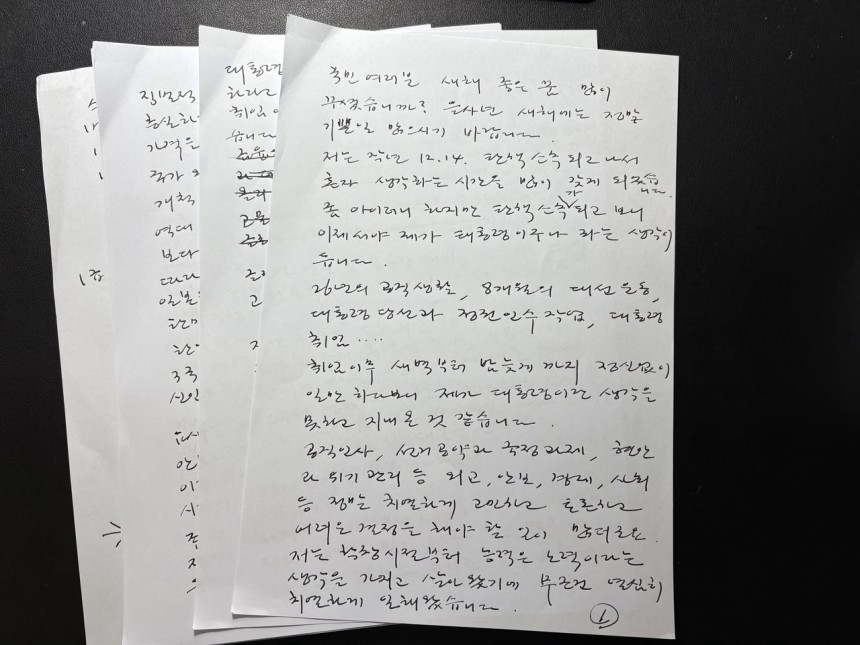 국민 여러분 새해 좋은 꿈 많이
꾸셨습니까? 을사년 새해에는 정말
기쁜 일 많으시기 바랍니다.
저는 작년 12.14. 탄핵소추 되고 나서
혼자 생각하는 시간을 많이 갖게 되었습니다.
좀 아이러니 하지만 탄핵소추가 되고 보니
이제서야 제가 대통령이구나 하는 생각이
듭니다.
26년의 공직생활, 8개월의 대선 운동,
대통령 당선과 정권 인수 작업, 대통령
취임 ....
취임 이후 새벽부터 밤늦게까지 정신없이
일만 하다보니 제가 대통령이란 생각을
못하고 지내온 것 같습니다.
공직인사, 선거공약과 국정과제, 현안
과 위기관리 등 외교, 안보, 경제, 사회
등 정말 치열하게 고민하고 토론하고
어려운 결정을 해야 할 일이 많더군요.
저는 학창시절부터 능력은 노력이라는
생각을 가지고 살아왔기에 무조건 열심히
치열하게 일해왔습니다.
1
대통령
하라고
취임
습니다
집범적
충실하
가격은
국가
개척
역대
보다
따라
일본